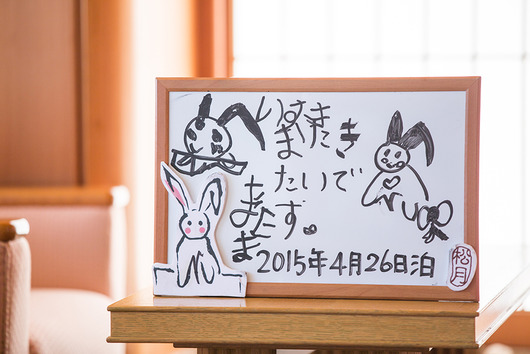 またき
たいで
す。
また
ま
2015年4月26日泊
松月